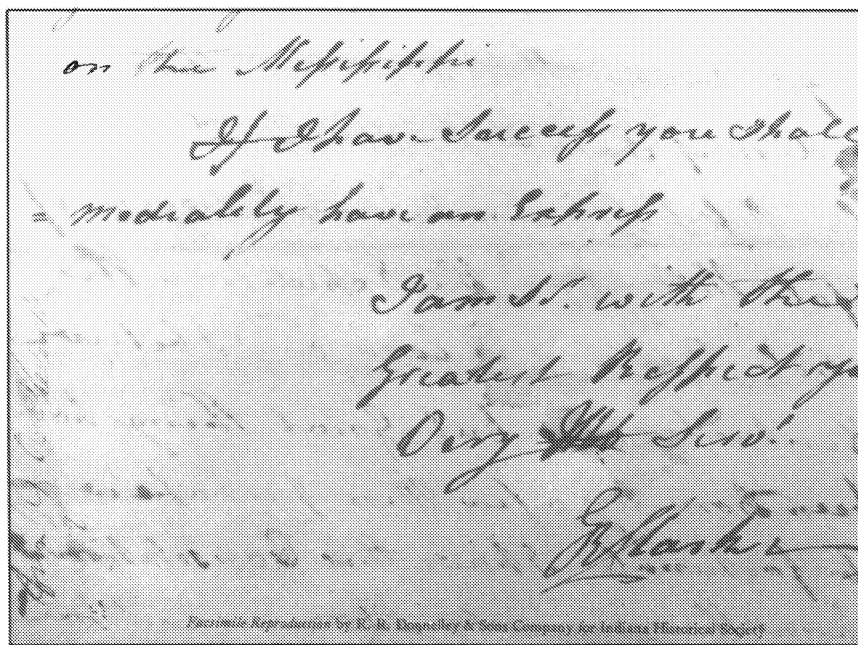 on the Missisippi
If I have Success you shall
= mediately have an Express
I am Sr. with the
Greatest Respect yo
Very Servt.
GR Clark
Facsimile Reproduction by R. R. Donnelley & Sons Company for Indiana Historical Society